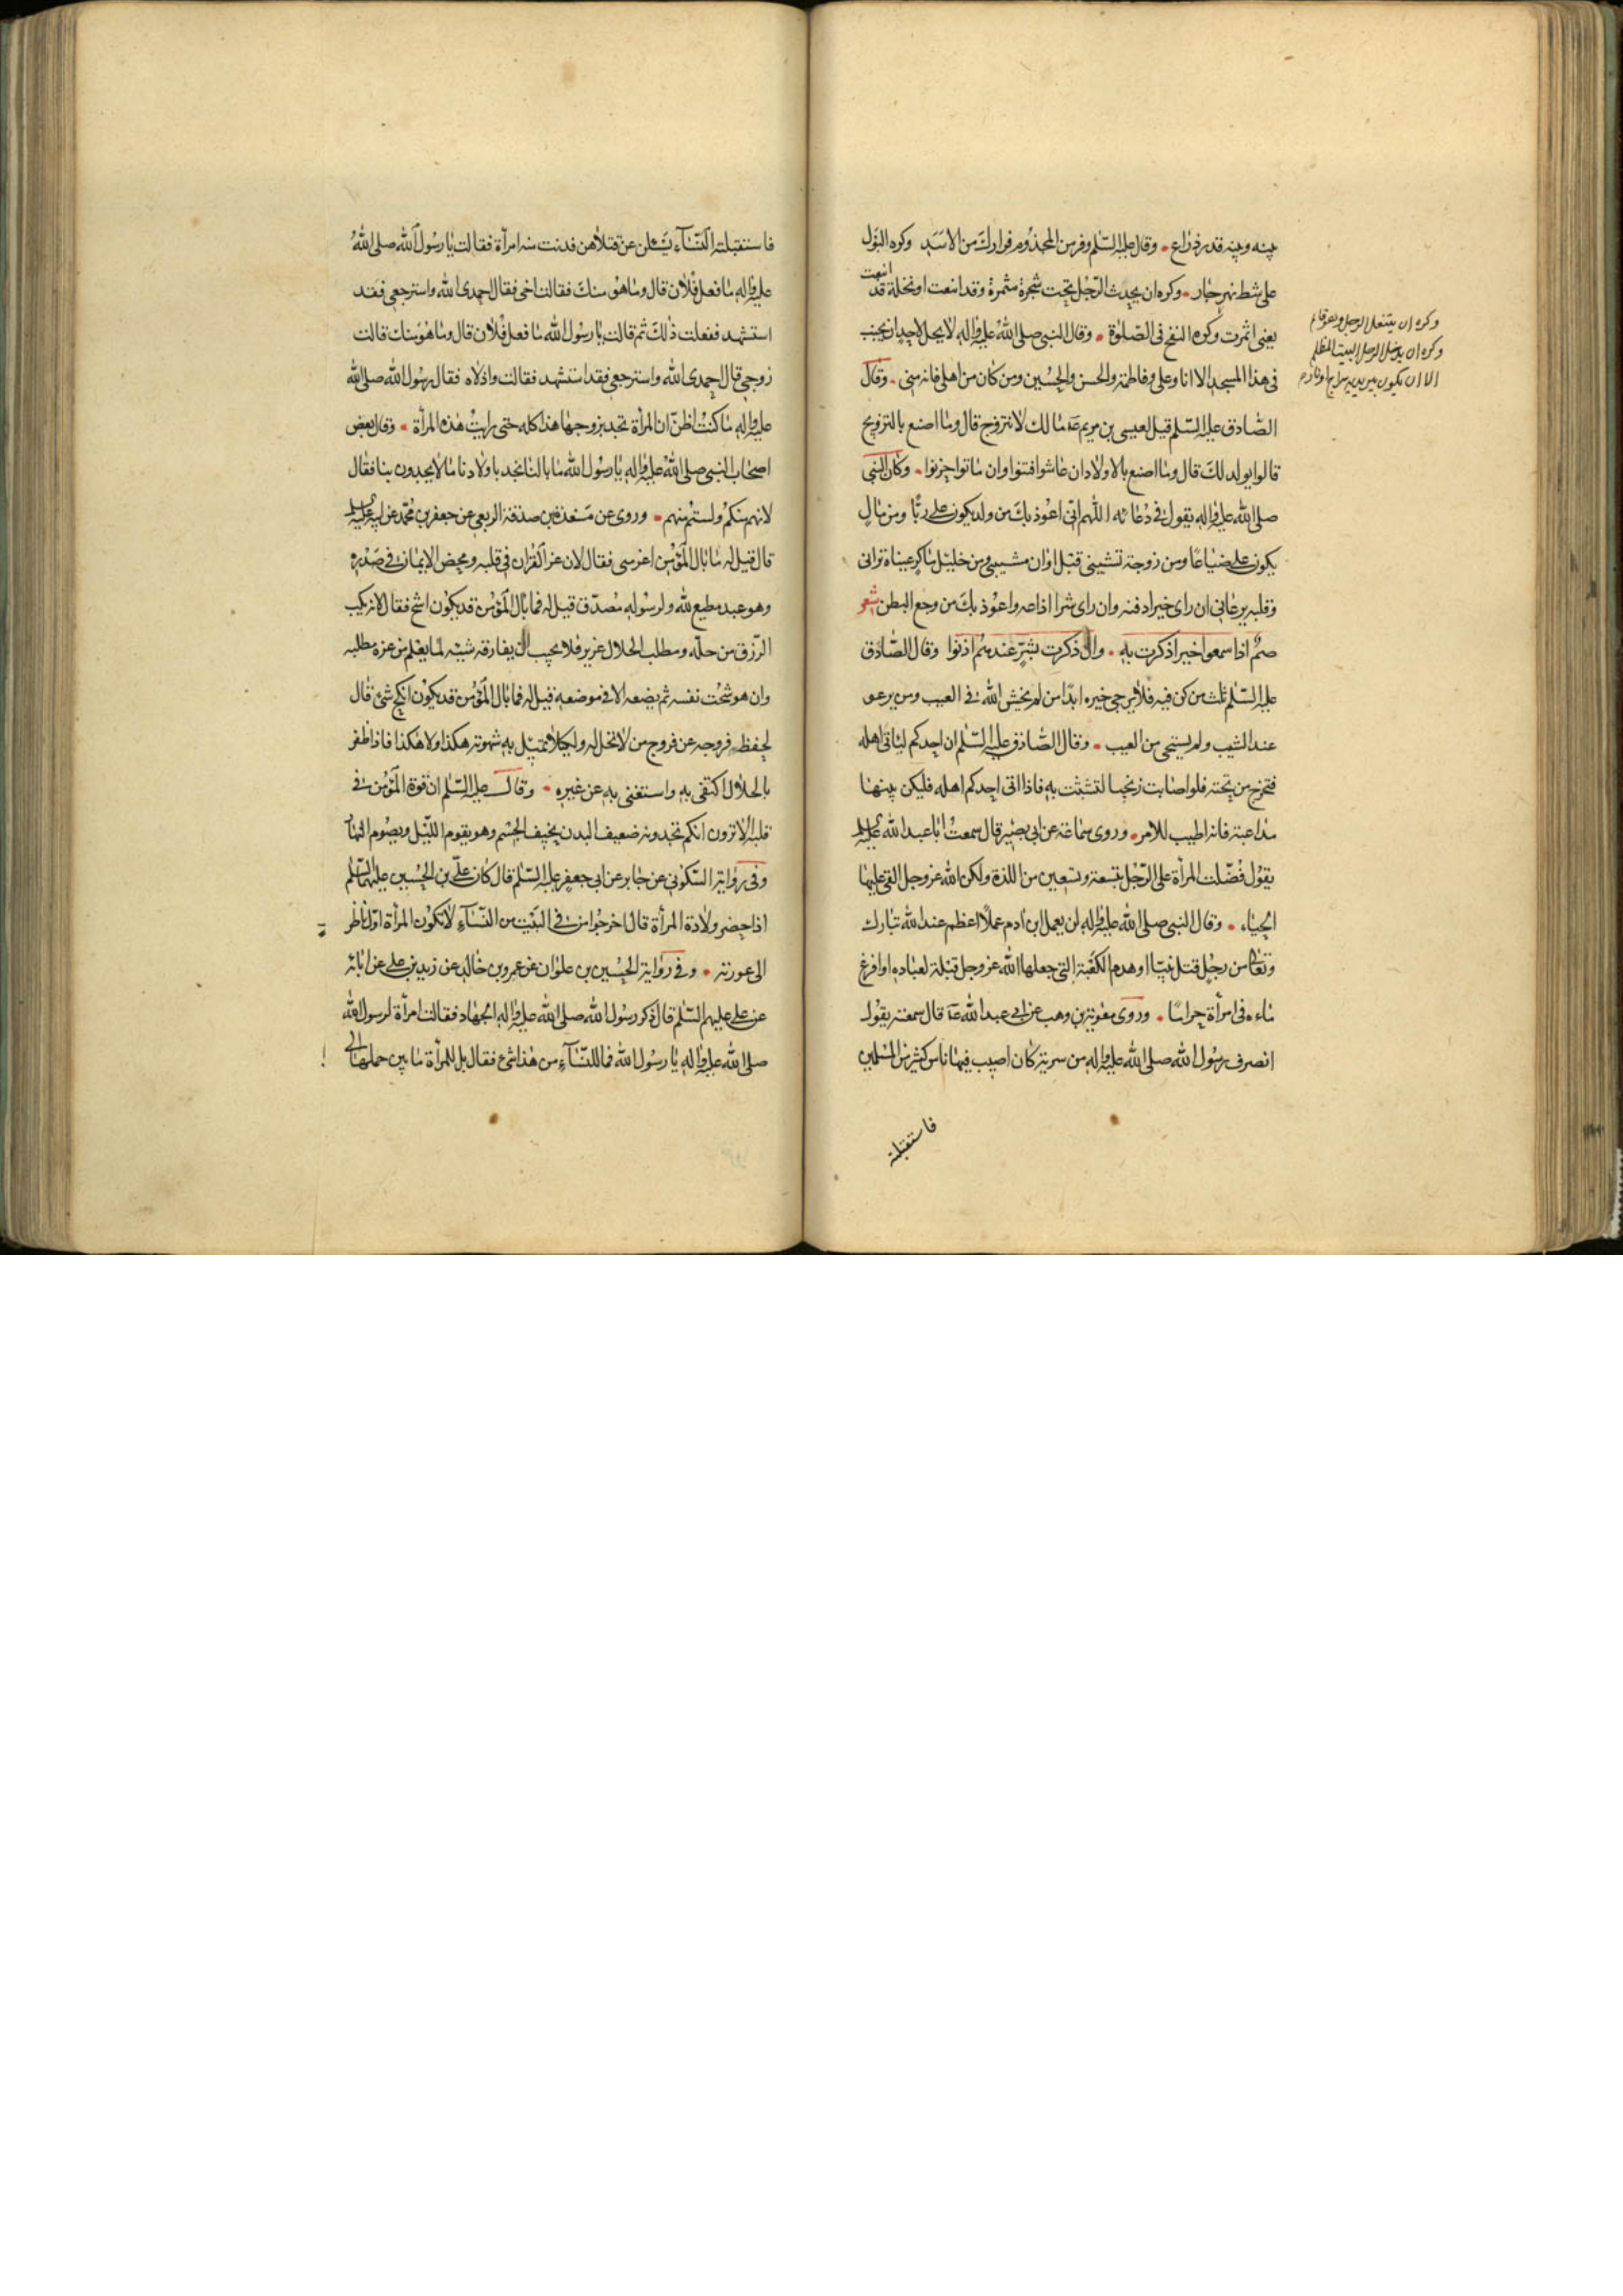 بينه وبينه قدر ذراع وقال عليه السلم وفر من المجذوم فرارك من الاسد وكره البول
على شط نهر جار وكره ان يحدث الرجل تحت شجرة مثمرة وقد اينعت او نخلة قد اينعت
يعنى اثمرت وكره النفخ فى الصلوة وقال النبى صلى الله عليه واله لا يحل لاحد ان يجنب
فى هذا المسجد الا انا وعلى وفاطمة والحسن والحسين ومن كان من اهلى فانه منى وقال
الصادق عليه السلم قيل لعيسى بن مريم ع مالك لا تتزوج قال وما اصنع بالتزويج
قالوا يولد لك قال وما اصنع بالاولاد ان عاشوا فتنوا وان ماتوا حزنوا وكان النبى
صلى الله عليه واله يقول فى دعائه اللهم انى اعوذ بك من ولد يكون على ربا ومن مال
يكون على ضياعا ومن زوجة تشيبنى قبل اوان مشيبى ومن خليل ماكر عيناه ترانى
وقلبه يرعانى ان راى خيرا دفنه وان راى شرا اذاعه واعوذ بك من وجع البطن شعر
صم اذا سمعوا خيرا ذكرت به وان ذكرت بشر عندهم اذنوا وقال الصادق
عليه السلم ثلث من كن فيه فلا يرجى خيره ابدا من لم يخش الله فى الغيب ومن يرعو
عند الشيب ولم يستحى من العيب وقال الصادق عليه السلم ان احدكم لياتى اهله
فتخرج من تحته فلو اصابت زنجيا لتشبثت به فاذا اتى احدكم اهله فليكن بينهما
مداعبة فانه اطيب للامر وروى سماعة عن ابى بصير قال سمعت ابا عبد الله عليه السلم
يقول فضلت المرأة على الرجل بتسعة وتسعين من اللذة ولكن الله عز وجل القى عليها
الحياء وقال النبى صلى الله عليه واله لن يعمل ابن ادم عملا اعظم عند الله تبارك
وتعالى من رجل قتل نبيا او هدم الكعبة التى جعلها الله عز وجل قبلة لعباده او افرغ
ماءه فى امرأة حراما وروى معوية بن وهب عن ابى عبد الله ع قال سمعته يقول
انصرف رسول الله صلى الله عليه واله من سرية كان اصيب فيها ناس كثير من المسلمين
فاستقبلته
وكره ان يتنعل الرجل وهو قائم
وكره ان يدخل الرجل البيت المظلم
الا ان يكون بين يديه سراج او نار م
فاستقبلته النساء يسئلن عن قتلاهن فدنت منه امرأة فقالت يا رسول الله صلى الله
عليه واله ما فعل فلان قال وما هو منك فقالت اخى فقال احمدى الله واسترجعى فقد
استشهد ففعلت ذلك ثم قالت يا رسول الله ما فعل فلان قال وما هو منك قالت
زوجى قال احمدى الله واسترجعى فقد استشهد فقالت واذلاه فقال رسول الله صلى الله
عليه واله ما كنت اظن ان المرأة تجد بزوجها هذا كله حتى رايت هذه المرأة وقال بعض
اصحاب النبى صلى الله عليه واله يا رسول الله ما بالنا نجد باولادنا ما لا يجدون بنا فقال
لانهم منكم ولستم منهم وروى عن مسعدة بن صدقة الربعى عن جعفر بن محمد عن ابيه عليهما السلم
قال قيل له ما بال المؤمن اعز شى فقال لان عز القران فى قلبه ومحض الايمان فى صدره
وهو عبد مطيع لله ولرسوله مصدق قيل له فما بال المؤمن قد يكون اشح فقال لانه يكسب
الرزق من حله ومطلب الحلال عزيز فلا يحب ان يفارقه شيئه لما يعلم من عزة مطلبه
وان هو سخت نفسه ثم يضعه الا فى موضعه قيل له فما بال المؤمن قد يكون انكح شئ قال
لحفظه فروجه عن فروج من لا تحل له ولكيلا تميل به شهوته هكذا ولا هكذا فاذا ظفر
بالحلال اكتفى به واستغنى به عن غيره وقال عليه السلم ان قوة المؤمن فى
قلبه الا ترون انكم تجدونه ضعيف البدن نحيف الجسم وهو يقوم الليل ويصوم النهار
وفى رواية السكونى عن جابر عن ابى جعفر عليه السلم قال كان على بن الحسين عليهما السلم
اذا حضر ولادة المرأة قال اخرجوا من فى البيت من النساء لا تكون المرأة اول ناظر
الى عورته وفى رواية الحسين بن علوان عن عمرو بن خالد عن زيد بن على عن ابائه
عن على عليهم السلم قال ذكر رسول الله صلى الله عليه واله الجهاد فقالت امرأة لرسول الله
صلى الله عليه واله يا رسول الله فما للنساء من هذا شئ فقال بل للمرأة ما بين حملها الى